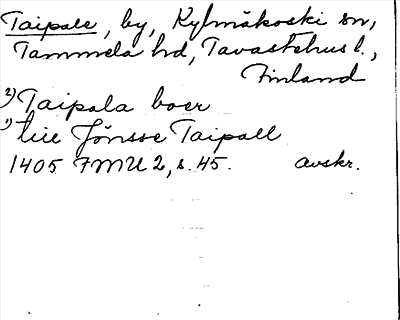 Taipale, by, Kylmäkoski sn,
Tammela hd, Tavastehus l.,
Finland
2) Taipala boer
1) lille Jönsse Taipall
1405 FMU 2, s. 45. avskr.